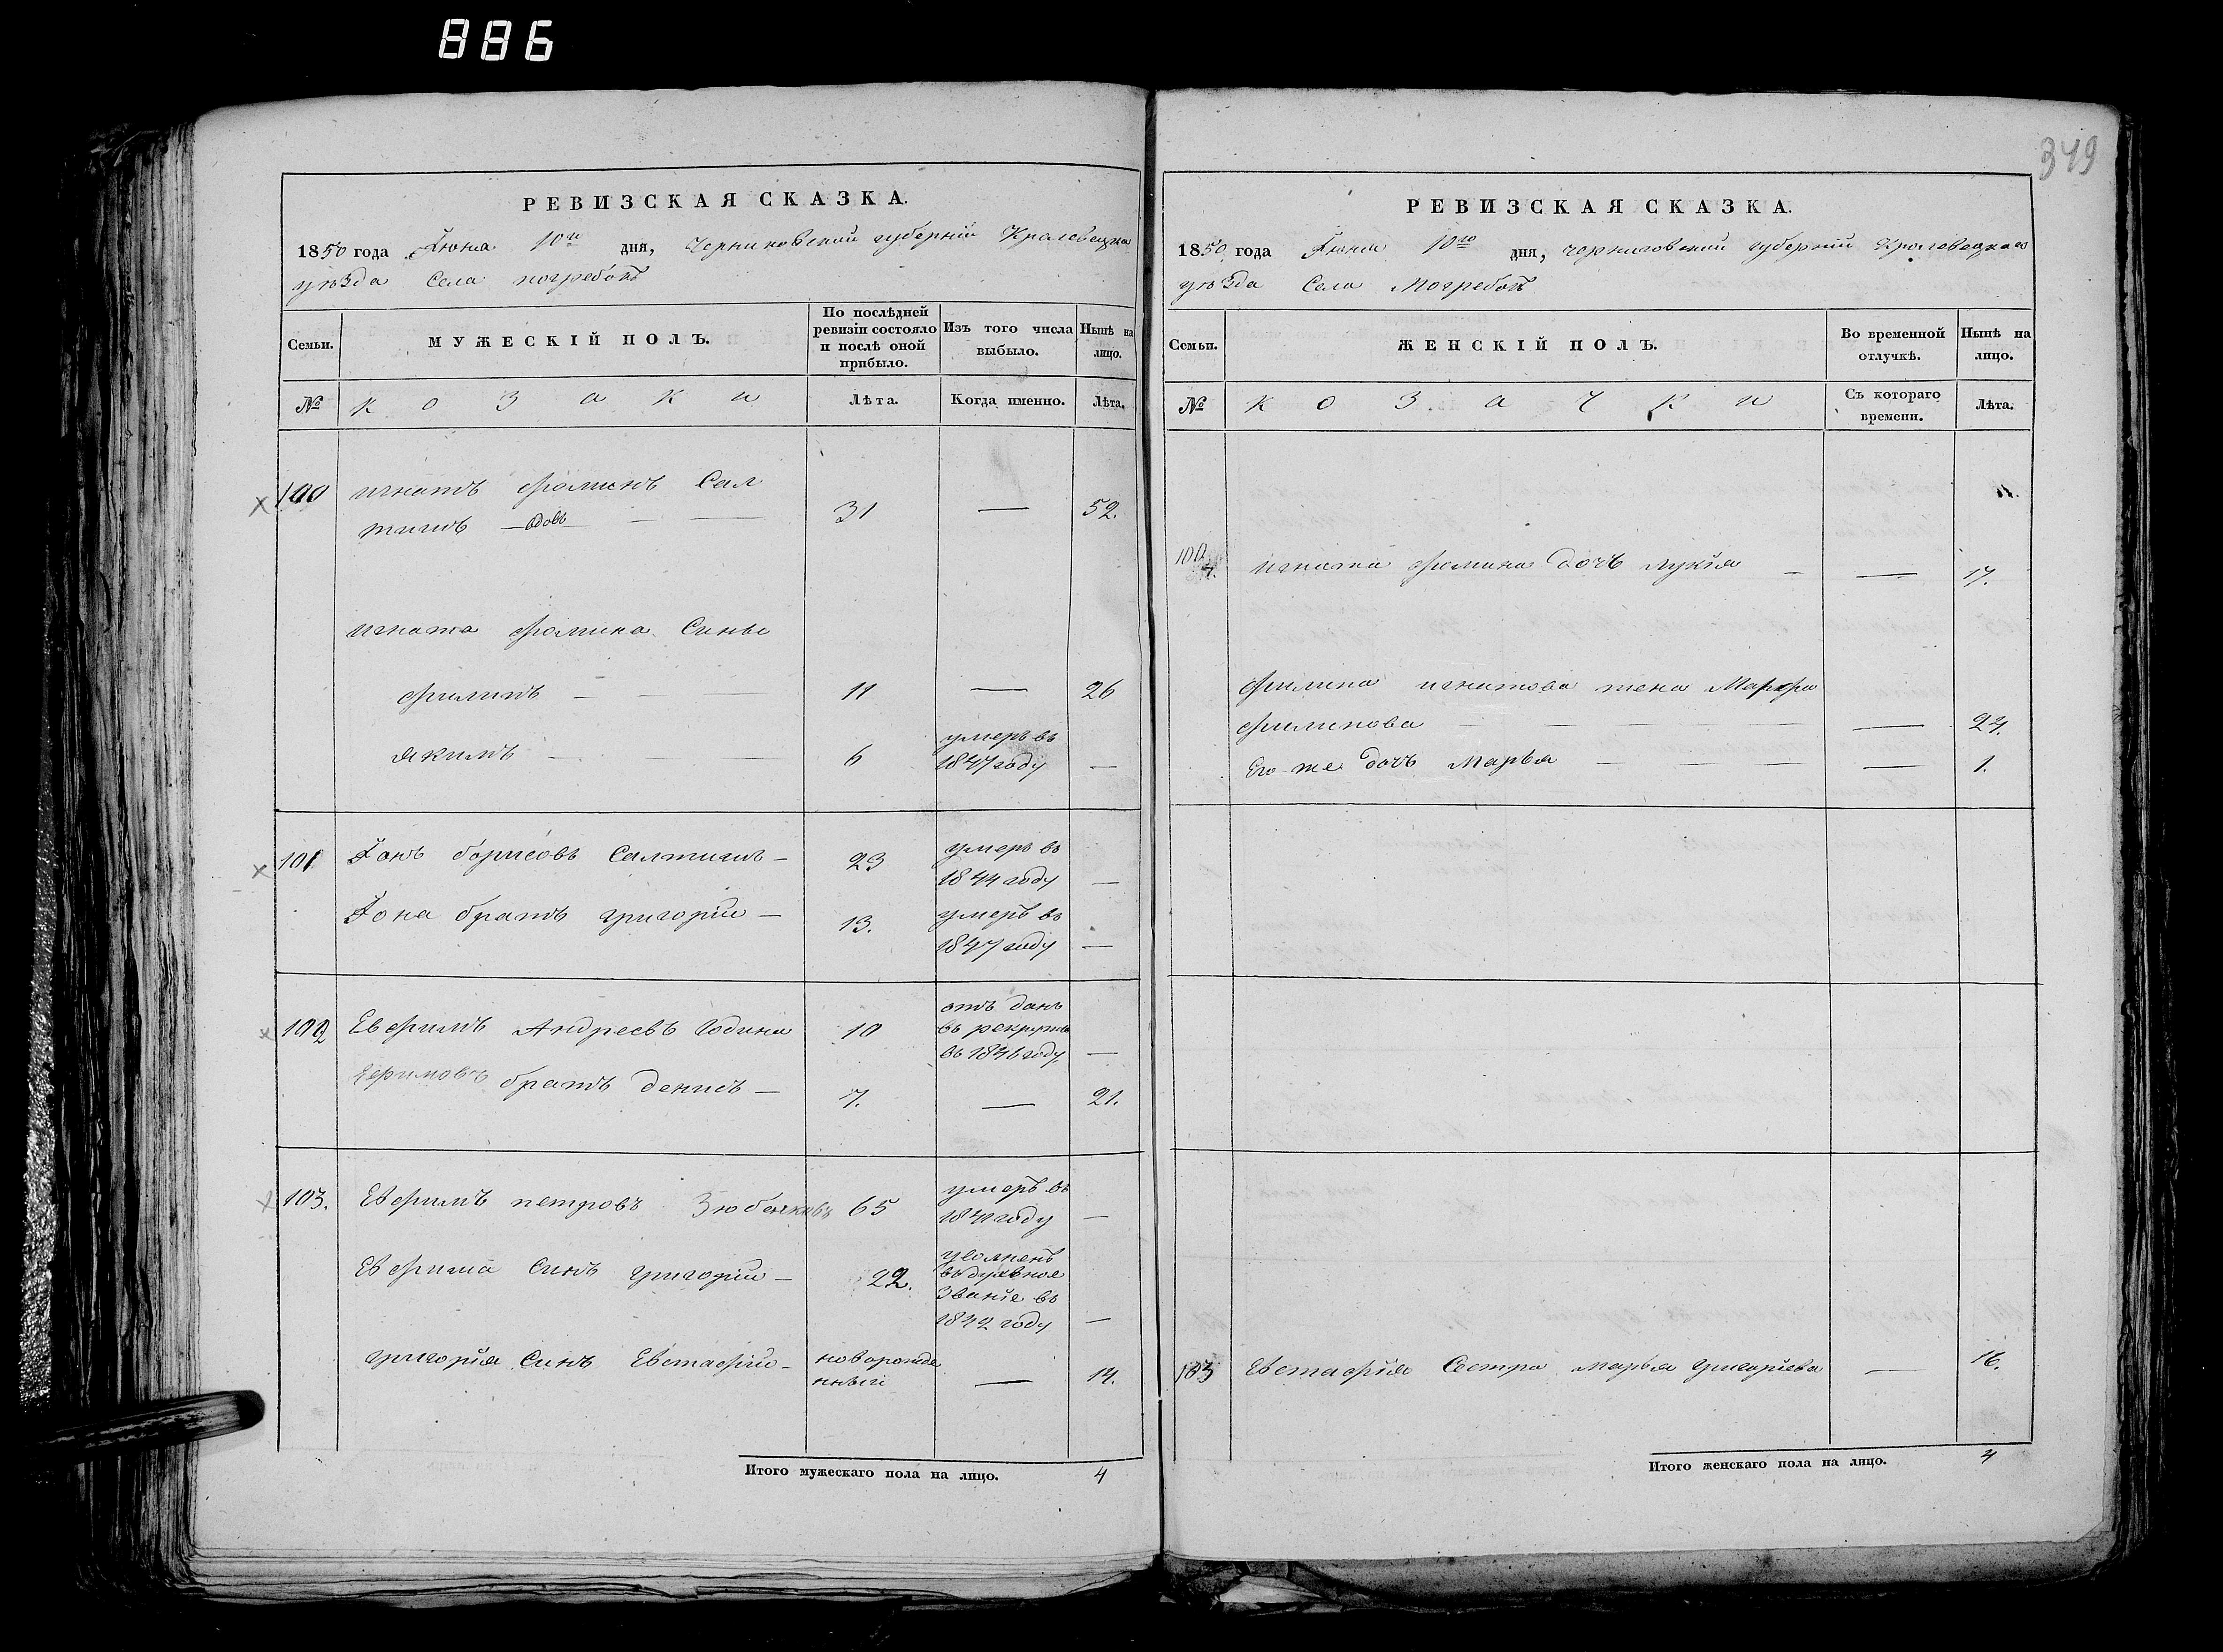 886
РЕВИЗСКАЯ СКАЗКА.
1850 года Іюня 10го дня, Черниговской губерніи Кролевецкаго
уѣзда Села погребокъ
Семьи.
МУЖЕСКІЙ ПОЛЪ.
По послѣдней
ревизіи состояло
и послѣ оной
прибыло.
Изъ того числа
выбыло.
Нынѣ на
лицо.
№
козаки
Лѣта.
Когда именно.
Лѣта.
100 игнатъ фоминъ Сал
тигин — вдовъ — — 31 — 52.
игната фомина Сины
филипъ — — 11 — 26
якимъ — — 6 умеръ въ
1847 году —
101 Іонъ борисовъ Салтигин — 23 умеръ въ
1844 году —
Іона братъ григорій — 13. умеръ въ
1847 году —
102 Евфимъ Андреевъ Година 10 отъ данъ
въ рекруты
въ 1846 году —
Ефимовъ братъ денисъ — 7. — 21.
103. Евфимъ петровъ 65 умеръ въ
1841 году —
Евфима Синъ григорій — 22. уволненъ
въ духовное
званіе въ
1842 году —
григорія Синъ Евстафій — новорожде
нный — 14.
Итого мужескаго пола на лицо. 4
349
РЕВИЗСКАЯ СКАЗКА.
1850 года Іюня 10го дня, черниговской губерніи Кролевецкаго
уѣзда Села Погребокъ
Семьи.
ЖЕНСКІЙ ПОЛЪ.
Во временной
отлучкѣ.
Нынѣ на
лицо.
№
козачки
Съ котораго
времени.
Лѣта.
100. игната фомина дочь лукія — — 17.
филипа игнатова жена Марфа
филипова — — — — 27.
Его же дочь Марья — — — — 1.
103 Евстафія Сестра марья григорьева — 16.
Итого женскаго пола на лицо. 4